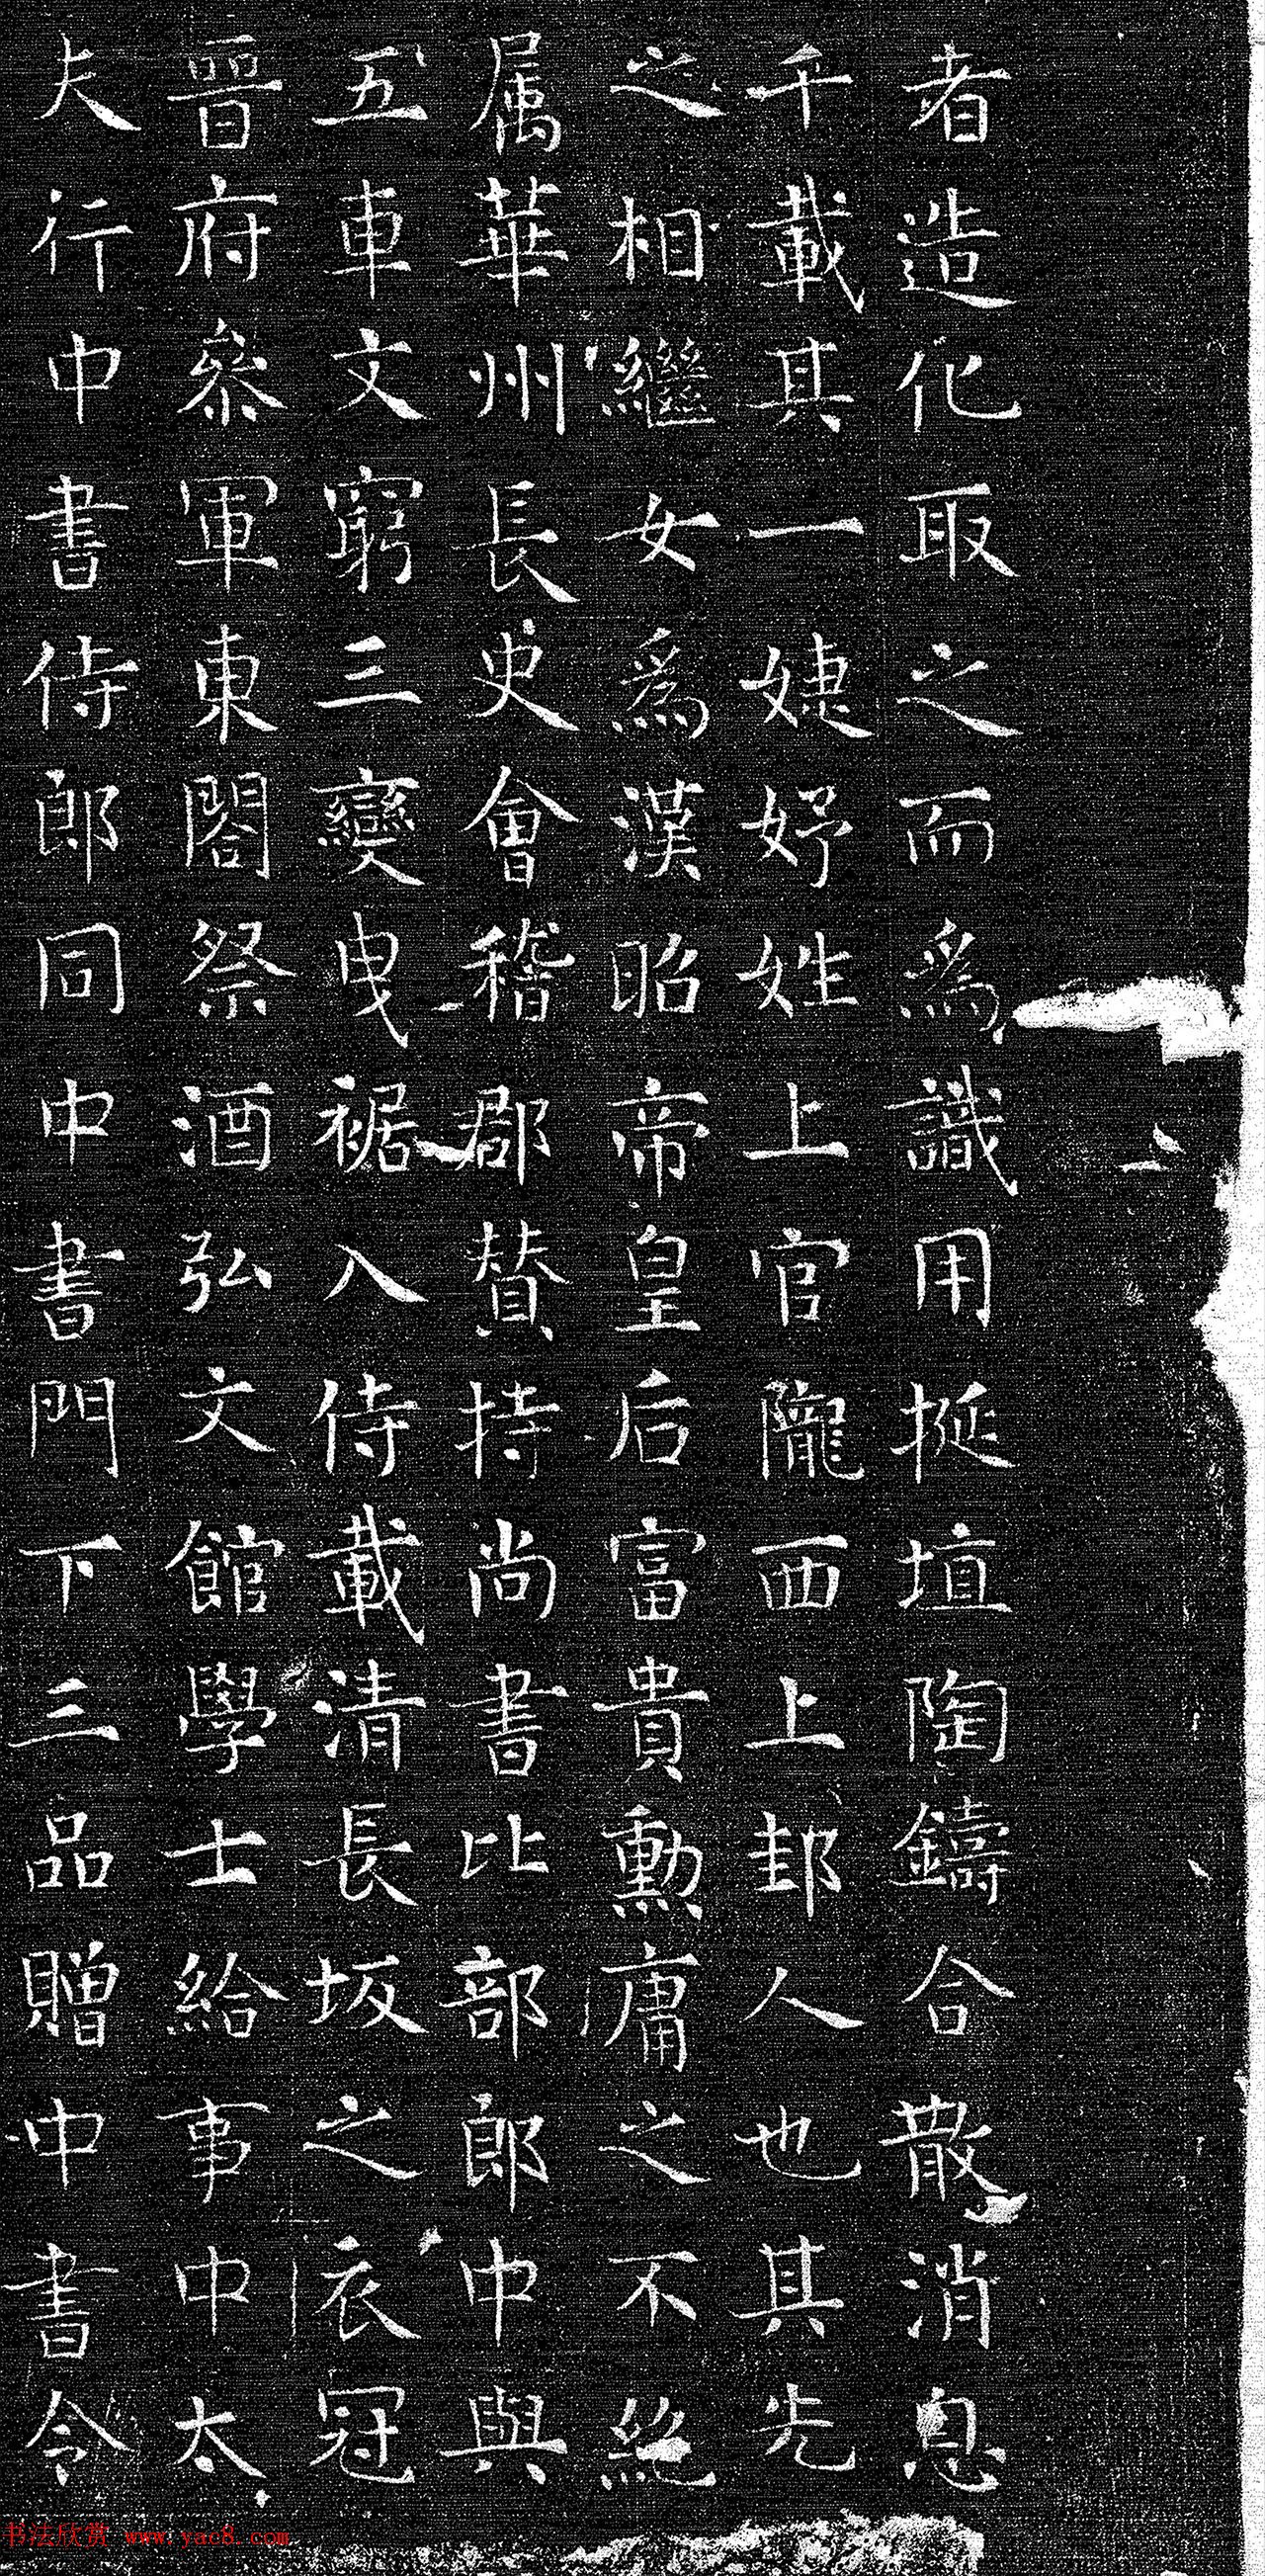 者造化取之而為識用挻埴陶鑄合散消息
千載其一婕妤姓上官隴西上邽人也其先
之相繼女為漢昭帝皇后富貴勳庸之不絕
属華州長史會稽郡贊持尚書比部郎中與
五車文窮三變曳裾入侍載清長坂之衣冠
晉府參軍東閤祭酒弘文館學士給事中太
夫行中書侍郎同中書門下三品贈中書令
书法欣赏 www.yac8.com